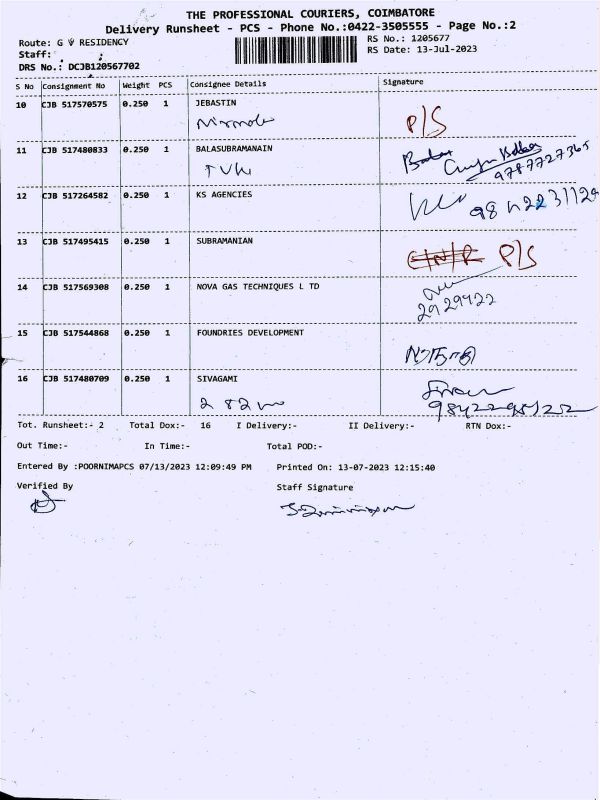 THE PROFESSIONAL COURIERS, COIMBATORE
Delivery Runsheet - PCS - Phone No.:0422-3505555 - Page No.:2
Route: G V RESIDENCY
RS No.: 1205677
Staff: :
RS Date: 13-Jul-2023
DRS No.: DCJB120567702
S No Consignment No Weight PCS Consignee Details Signature
10 CJB 517570575 0.250 1 JEBASTIN
P/S
11 CJB 517480833 0.250 1 BALASUBRAMANAIN
9787727365
12 CJB 517264582 0.250 1 KS AGENCIES
13 CJB 517495415 0.250 1 SUBRAMANIAN
P/S
14 CJB 517569308 0.250 1 NOVA GAS TECHNIQUES L TD
2929422
15 CJB 517544868 0.250 1 FOUNDRIES DEVELOPMENT
16 CJB 517480709 0.250 1 SIVAGAMI
Tot. Runsheet:- 2 Total Dox:- 16 I Delivery:- II Delivery:- RTN Dox:-
Out Time:- In Time:- Total POD:-
Entered By :POORNIMAPCS 07/13/2023 12:09:49 PM Printed On: 13-07-2023 12:15:40
Verified By Staff Signature